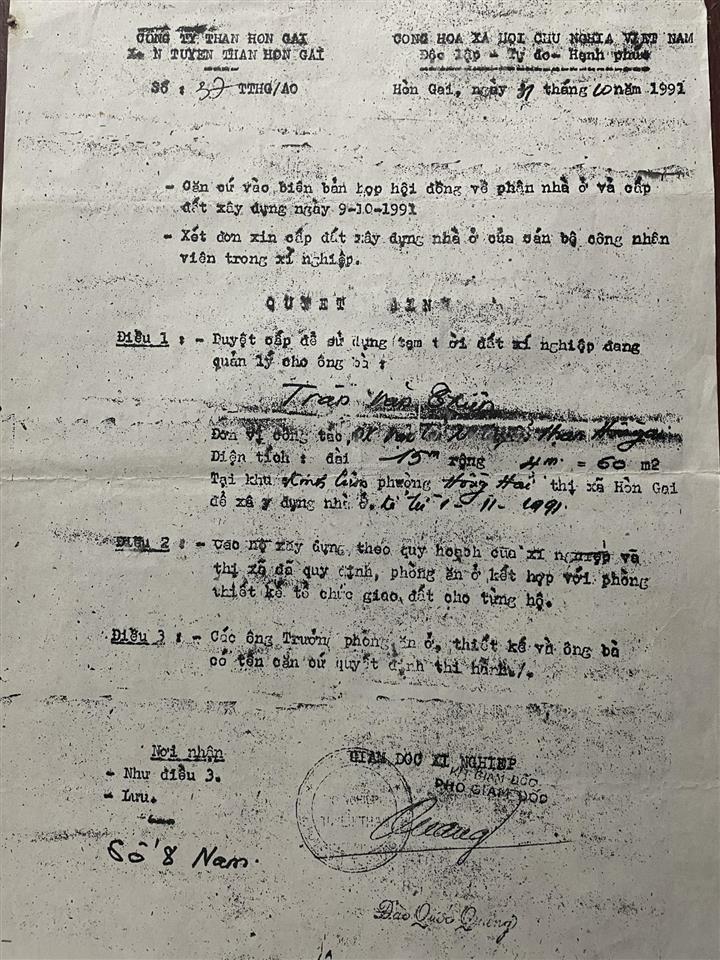 CÔNG TY THAN HON GAI
CONG HOA XÃ HỘI CHU NGHIA VIỆT NAM
N TUYEN THAN HON GAI
Độc lập - Tự do- Hạnh phúc
Số : 37 TTHG/AO
Hòn Gai, ngày 31 tháng 10 năm 1991
- Căn cứ vào biên bản họp hội đồng về phân nhà ở và cấp
đất xây dựng ngày 9-10-1991
- Xét đơn xin cấp đất xây dựng nhà ở của cán bộ công nhân
viên trong xí nghiệp.
QUYET DINH
Điều 1 : - Duyệt cấp để sử dụng tạm t ời đất xí nghiệp đang
quản lý cho ông bà :
Trần Văn
Đơn vị công tác, Than Hòn gai
Diện tích : dài 15m rộng 4m = 60 m2
Tại khu phường Hồng Hải thị xã Hòn Gai
để xâ y dựng nhà ở. kể từ 1-11-1991.
Điều 2 : - Các hộ xây dựng theo quy hoạch của xí nghiệp và
thị xã đã quy định, phòng ăn ở kết hợp với phòng
thiết kế tổ chức giao đất cho từng hộ.
Điều 3 : - Các ông Trưởng phòng ăn ở, thiết kế và ông bà
có tên căn cứ quyết định thi hành./.
Nơi nhận
- Như điều 3.
- Lưu.
GIAM DOC XI NGHIEP
KT GIAM ĐỐC
PHO GIAM ĐỐC
Quang
Số 8 Nam.
Đào Quốc Quang